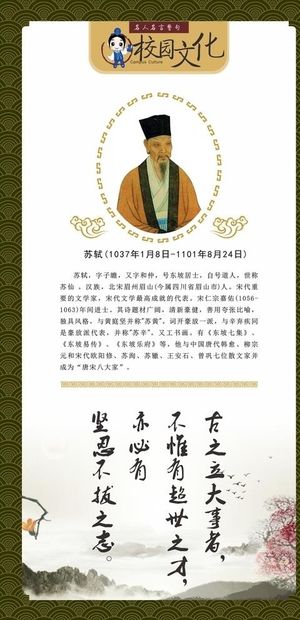 名人名言警句
校园文化
Campus Culture
苏轼(1037年1月8日-1101年8月24日)
苏轼，字子瞻，又字和仲，号东坡居士，自号道人，世称
苏仙 。汉族，北宋眉州眉山(今属四川省眉山市)人。宋代重
要的文学家，宋代文学最高成就的代表。宋仁宗嘉佑(1056-
1063)年间进士。其诗题材广阔，清新豪健，善用夸张比喻，
独具风格，与黄庭坚并称"苏黄"。词开豪放一派，与辛弃疾同
是豪放派代表，并称"苏辛"。又工书画。有《东坡七集》、
《东坡易传》、《东坡乐府》等，他与中国唐代韩愈、柳宗
元和宋代欧阳修、苏洵、苏辙、王安石、曾巩七位散文家并
成为"唐宋八大家"。
古之立大事者，
不惟有超世之才，
亦必有
坚忍不拔之志。